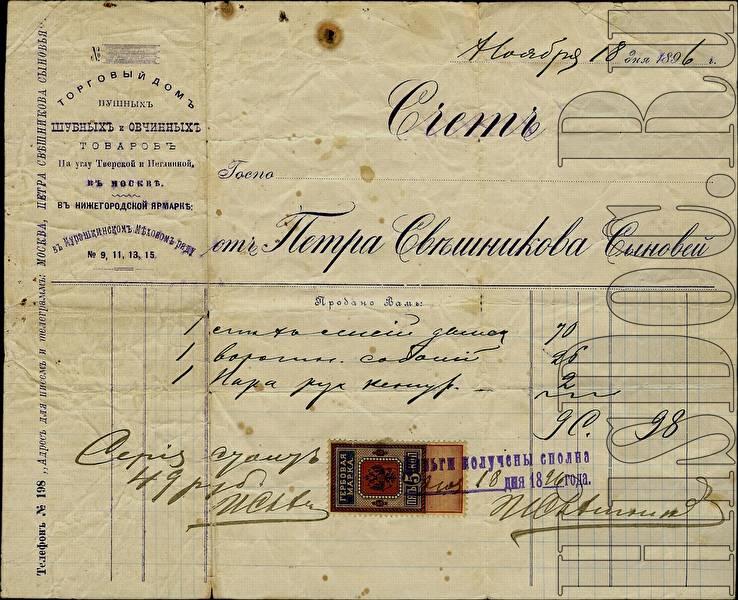 №
ТОРГОВЫЙ ДОМЪ
ПУШНЫХЪ
ШУБНЫХЪ и ОВЧИННЫХЪ
ТОВАРОВЪ
На углу Тверской и Неглинной,
ВЪ МОСКВѢ.
ВЪ НИЖЕГОРОДСКОЙ ЯРМАРКѢ:
въ Курашкинскомъ Мѣховомъ ряду
№ 9, 11, 13, 15.
Телефонъ № 198 „Адресъ для писемъ и телеграммъ: МОСКВА, ПЕТРА СВѢШНИКОВА СЫНОВЬЯ“.
Ноября 18 дня 1896 г.
Счетъ
Госпо
отъ Петра Свѣшникова Сыновей
Продано Вамъ:
1 70
1 воротн. соболій 26
1 Пара рук 2
98
Серія
49 руб
ГЕРБОВАЯ МАРКА.
ЦѢ 5 КОП
ньги получены сполна
18 дня 1896 года.
HISTDOC.RU